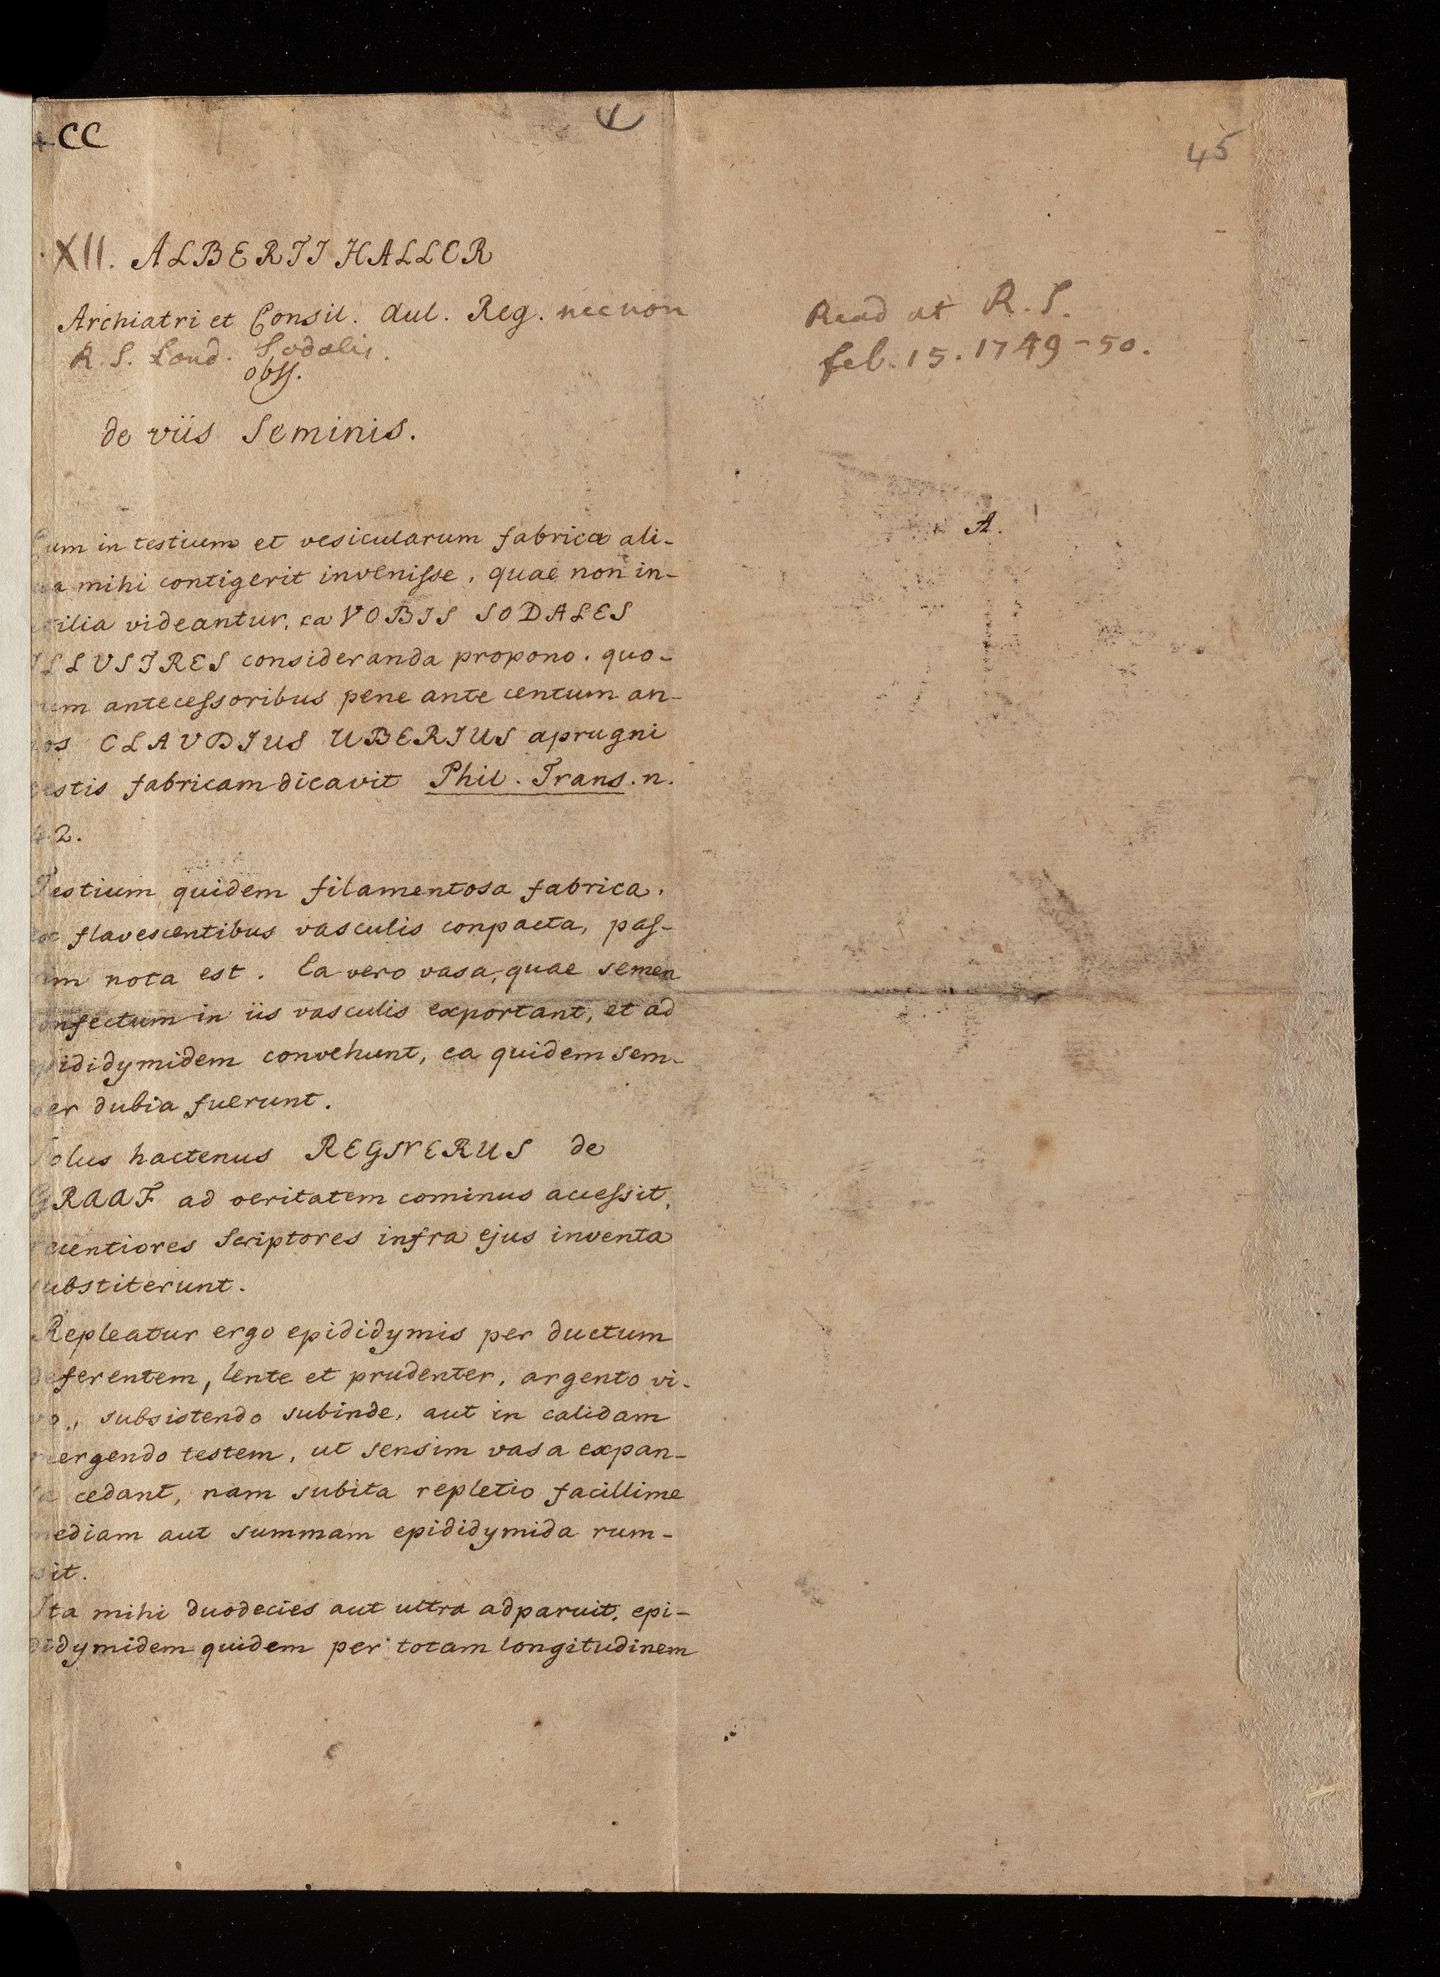 +CC
45
XII. ALBERTI HALLER
Archiatri et Consil. Aul. Reg. necnon
R. S. Lond. Sodalis.
obss.
de viis Seminis.
Read at R. S.
feb. 15. 1749-50.
A.
Cum in testium et vesicularum fabrica ali-
qua mihi contigerit invenisse, quae non in-
utilia videantur, ea VOBIS SODALES
ILLUSTRES consideranda propono. quo-
rum antecessoribus pene ante centum an-
nos CLAVDIUS UBERIUS aprugni
testis fabricam dicavit Phil. Trans. n.
42.
Testium quidem filamentosa fabrica,
ex flavescentibus vasculis conpacta, pas-
sim nota est. Ea vero vasa, quae semen
confectum in iis vasculis exportant, et ad
epididymidem convehunt, ea quidem sem-
per dubia fuerunt.
Solus hactenus REGNERUS de
GRAAF ad veritatem cominus accessit,
recentiores Scriptores infra ejus inventa
substiterunt.
Repleatur ergo epididymis per ductum
deferentem, lente et prudenter, argento vi-
vo, subsistendo subinde, aut in calidam
mergendo testem, ut sensim vasa expan-
sa cedant, nam subita repletio facillime
mediam aut summam epididymida rum-
pit.
Ita mihi duodecies aut ultra adparuit, epi-
didymidem quidem per totam longitudinem